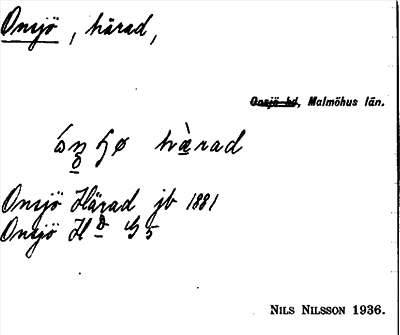 Onsjö, härad,
Onsjö hd, Malmöhus län.
hærad
Onsjö Härad jb 1881
Onsjö Hd G5
NILS NILSSON 1936.